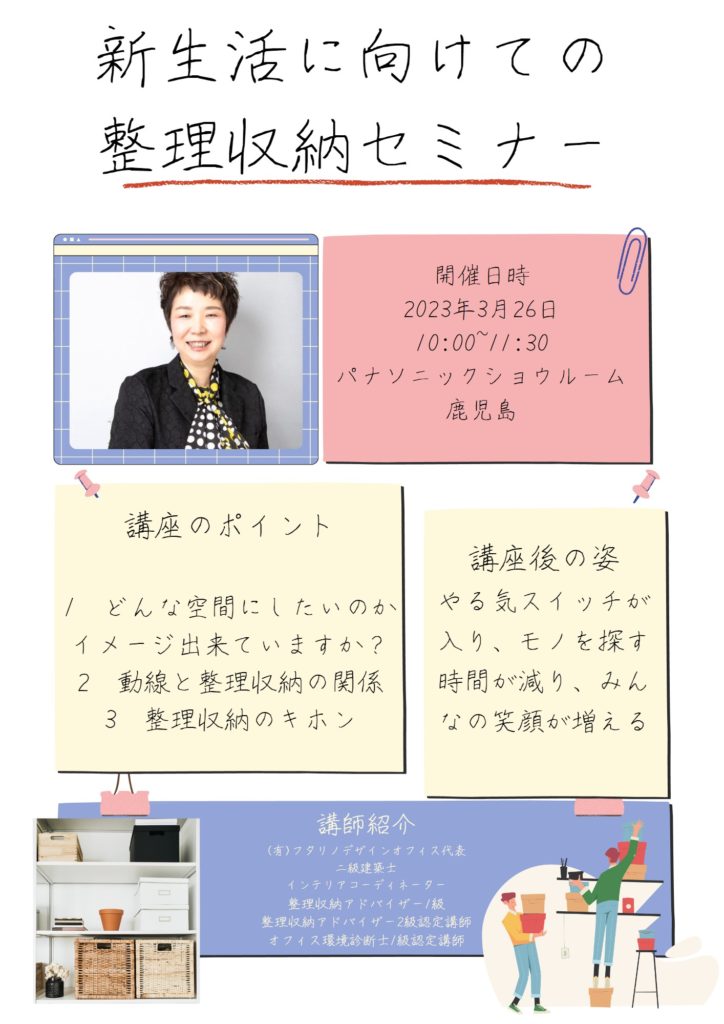 新生活に向けての
整理収納セミナー
開催日時
2023年3月26日
10:00~11:30
パナソニックショウルーム
鹿児島
講座のポイント
1　どんな空間にしたいのか
イメージ出来ていますか?
2　動線と整理収納の関係
3　整理収納のキホン
講座後の姿
やる気スイッチが
入り、モノを探す
時間が減り、みん
なの笑顔が増える
講師紹介
(有)フタリノデザインオフィス代表
二級建築士
インテリアコーディネーター
整理収納アドバイザー1級
整理収納アドバイザー2級認定講師
オフィス環境診断士1級認定講師